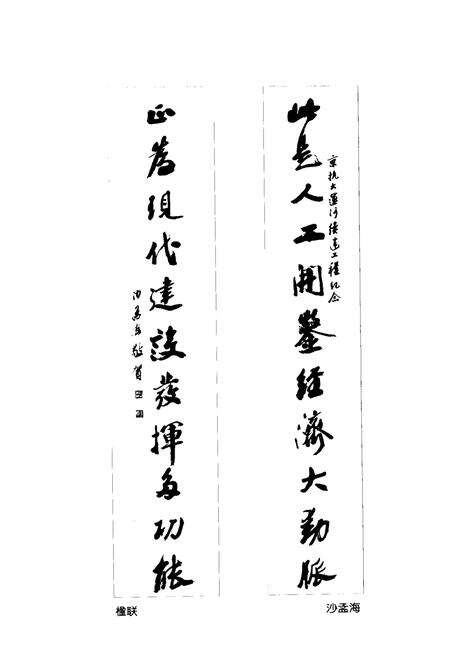 此是人工開鑿經濟大動脈
京杭大運河續建工程纪念
正為現代建設發揮多功能
沙孟海敬賀
楹联
沙孟海